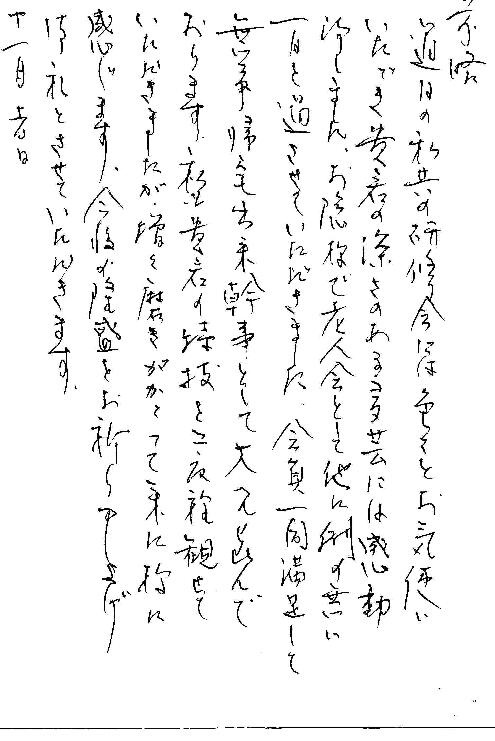 前略
過日の私共の研修会には色々とお気使い
いたゞき貴君の深さのある多芸には感動
致しました。お陰様で老人会として他に例の無い
一日を過させていたゞきました、会員一同満足して
無事帰宅出来幹事として大へん喜んで
おります。私は貴君の特技を二度程観せて
いたゞきましたが増々磨きがかゝって来た様に
感じます、今後の隆盛をお祈り申し上げ
御礼とさせていたゞきます。
十一月 日